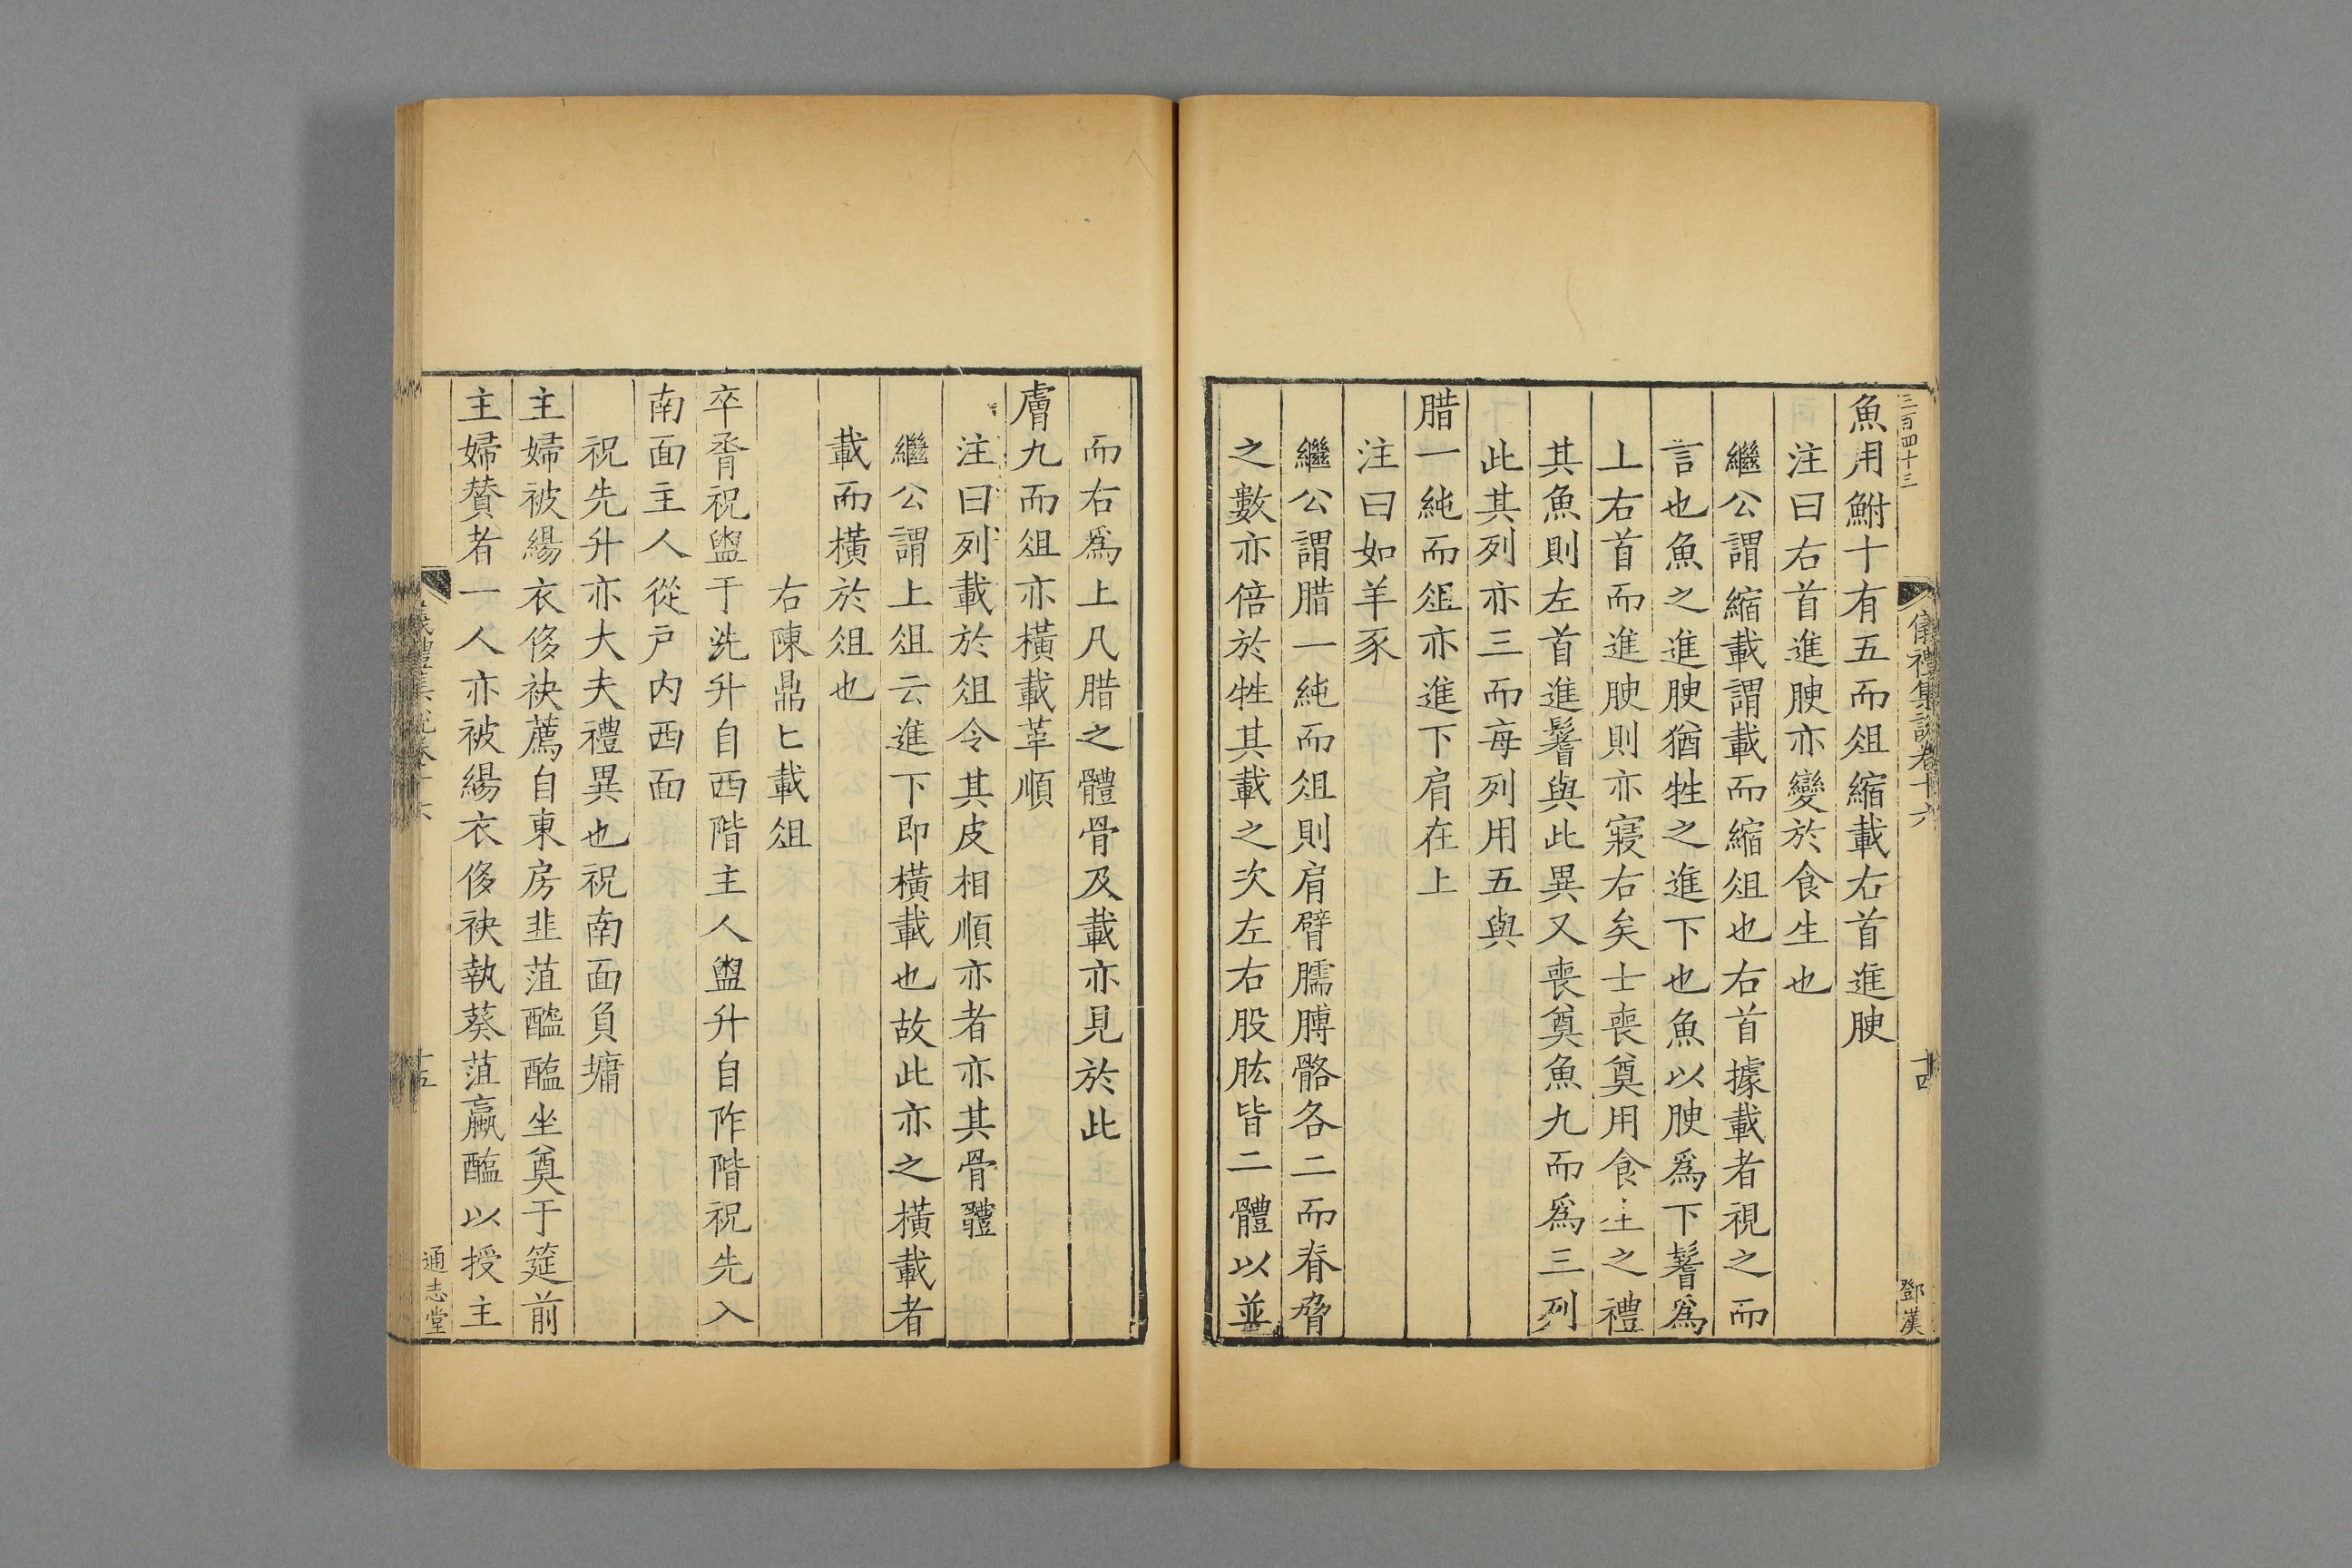 三百四十三
儀禮集說卷十六
十四
鄧漢
魚用鮒十有五而俎縮載右首進腴
注曰右首進腴亦變於食生也
繼公謂縮載謂載而縮俎也右首據載者視之而
言也魚之進腴猶牲之進下也魚以腴爲下鬐爲
上右首而進腴則亦寢右矣士喪奠用食生之禮
其魚則左首進鬐與此異又喪奠魚九而爲三列
此其列亦三而每列用五與
腊一純而俎亦進下肩在上
注曰如羊豕
繼公謂腊一純而俎則肩臂臑膊骼各二而脊脅
之數亦倍於牲其載之次左右股肱皆二體以並
而右爲上凡腊之體骨及載亦見於此
膚九而俎亦橫載革順
注曰列載於俎令其皮相順亦者亦其骨體
繼公謂上俎云進下即橫載也故此亦之橫載者
載而橫於俎也
右陳鼎匕載俎
卒脀祝盥于洗升自西階主人盥升自阼階祝先入
南面主人從户内西面
祝先升亦大夫禮異也祝南面負墉
主婦被緆衣侈袂薦自東房韭菹醓醢坐奠于筵前
主婦贊者一人亦被緆衣侈袂執葵菹蠃醢以授主
儀禮集說卷十六
十五
通志堂